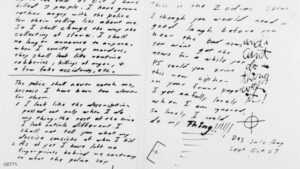 killed 7 people. I have grown
rather angry with the police
for their telling lies about me.
So I shall change the way the
collecting of slaves. I shall
no longer announce to anyone.
when I comitt my murders,
they shall look like routine
robberies, killings of anger, &
a few fake accidents, etc.
The police shall never catch me,
because I have been too clever
for them.
1 I look like the description
passed out only when I do
my thing, the rest of the time
I look entirle different. I
shall not tell you what my
descise consists of when I kill
2 As of yet I have left no
fingerprints behind me contrary
to what the police say
This is the Zodiac
I though you would need a
good laugh before you
hear the bad news
you won't get the
news for a while yet
PS could you print
this new cipher
in your frunt page?
I get awfully lonely
when I am ignored,
So lonely I could
do my Thing!!!!!!
Des July Aug
Sept Oct = 7